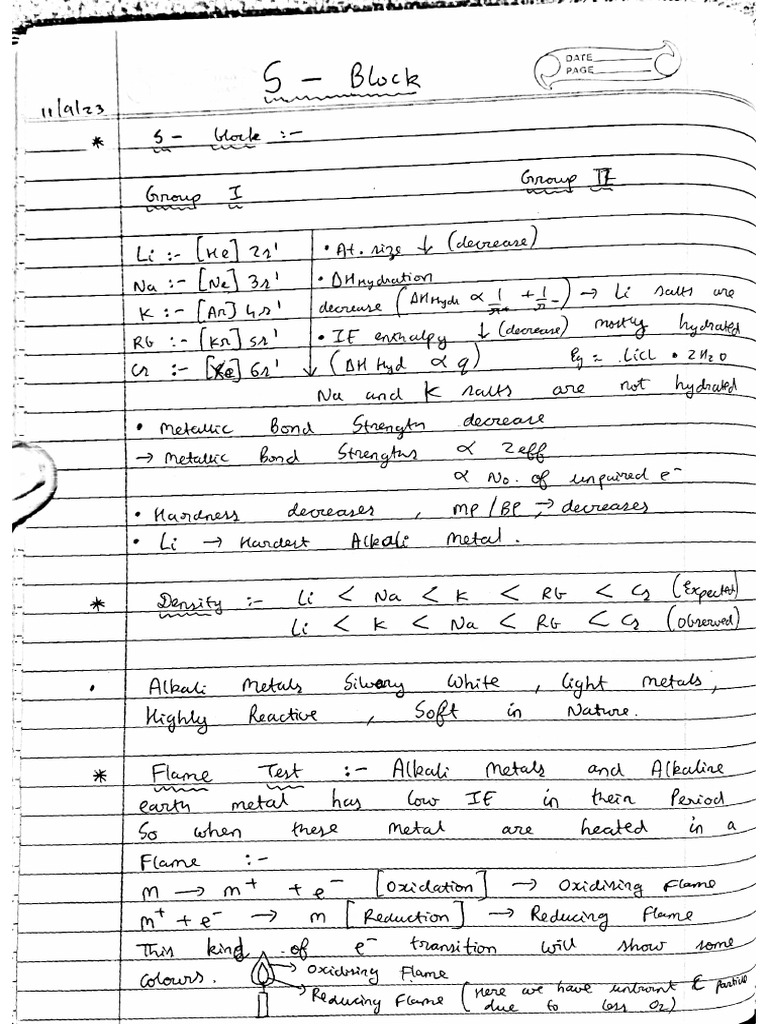 DATE
PAGE
S - Block
11/9/23
* S - block :-
Group I
Group II
Li :- [He] 2s¹ • At. size ↓ (decrease)
Na :- [Ne] 3s¹ • ΔH Hydration
K :- [Ar] 4s¹ decrease (ΔH Hydr ∝ 1/r+ + 1/r-) → Li salts are
Rb :- [Kr] 5s¹ • IE enthalpy ↓ (decrease) mostly hydrated
Cs :- [Xe] 6s¹ (ΔH Hyd ∝ q) Eg = LiCl • 2H₂O
Na and K salts are not hydrated
• Metallic Bond Strength decrease
→ Metallic Bond Strengths ∝ Zeff
∝ No. of unpaired e⁻
• Hardness decreases, MP/BP → decreases
• Li → Hardest Alkali Metal.
* Density :- Li < Na < K < Rb < Cs (Expected)
Li < K < Na < Rb < Cs (Observed)
• Alkali Metals Silvery White, light metals,
Highly Reactive, Soft in Nature.
* Flame Test :- Alkali Metals and Alkaline
earth metal has low IE in their Period
So when these metal are heated in a
Flame :-
M → M⁺ + e⁻ [Oxidation] → Oxidising Flame
M⁺ + e⁻ → M [Reduction] → Reducing Flame
This kind of e⁻ transition will show some
colours. → Oxidising Flame
→ Reducing Flame (Here we have unburnt C particle
due to less O₂)